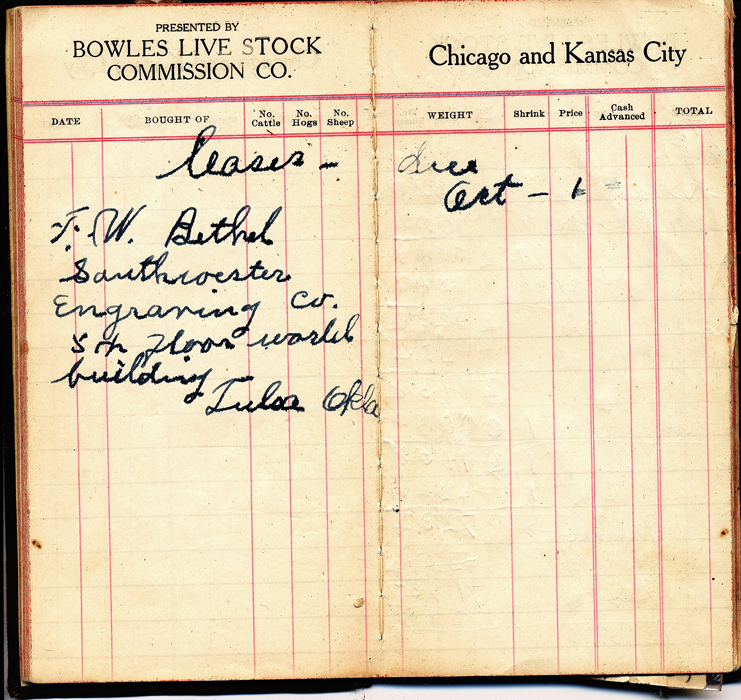 PRESENTED BY
BOWLES LIVE STOCK
COMMISSION CO.
Chicago and Kansas City
DATE BOUGHT OF No. Cattle No. Hogs No. Sheep WEIGHT Shrink Price Cash Advanced TOTAL
leases - Due
Oct - 1
F. W. Bethel
Southwester
Engraving Co.
5th floor world
building -
Tulsa Okla